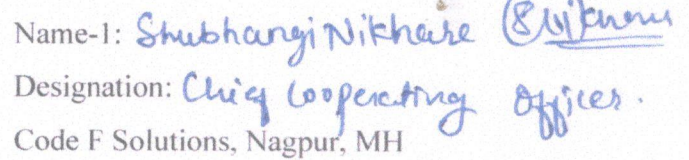 Name-1: Shubhangi Nikhare
Designation: Chief Cooperating Officer.
Code F Solutions, Nagpur, MH